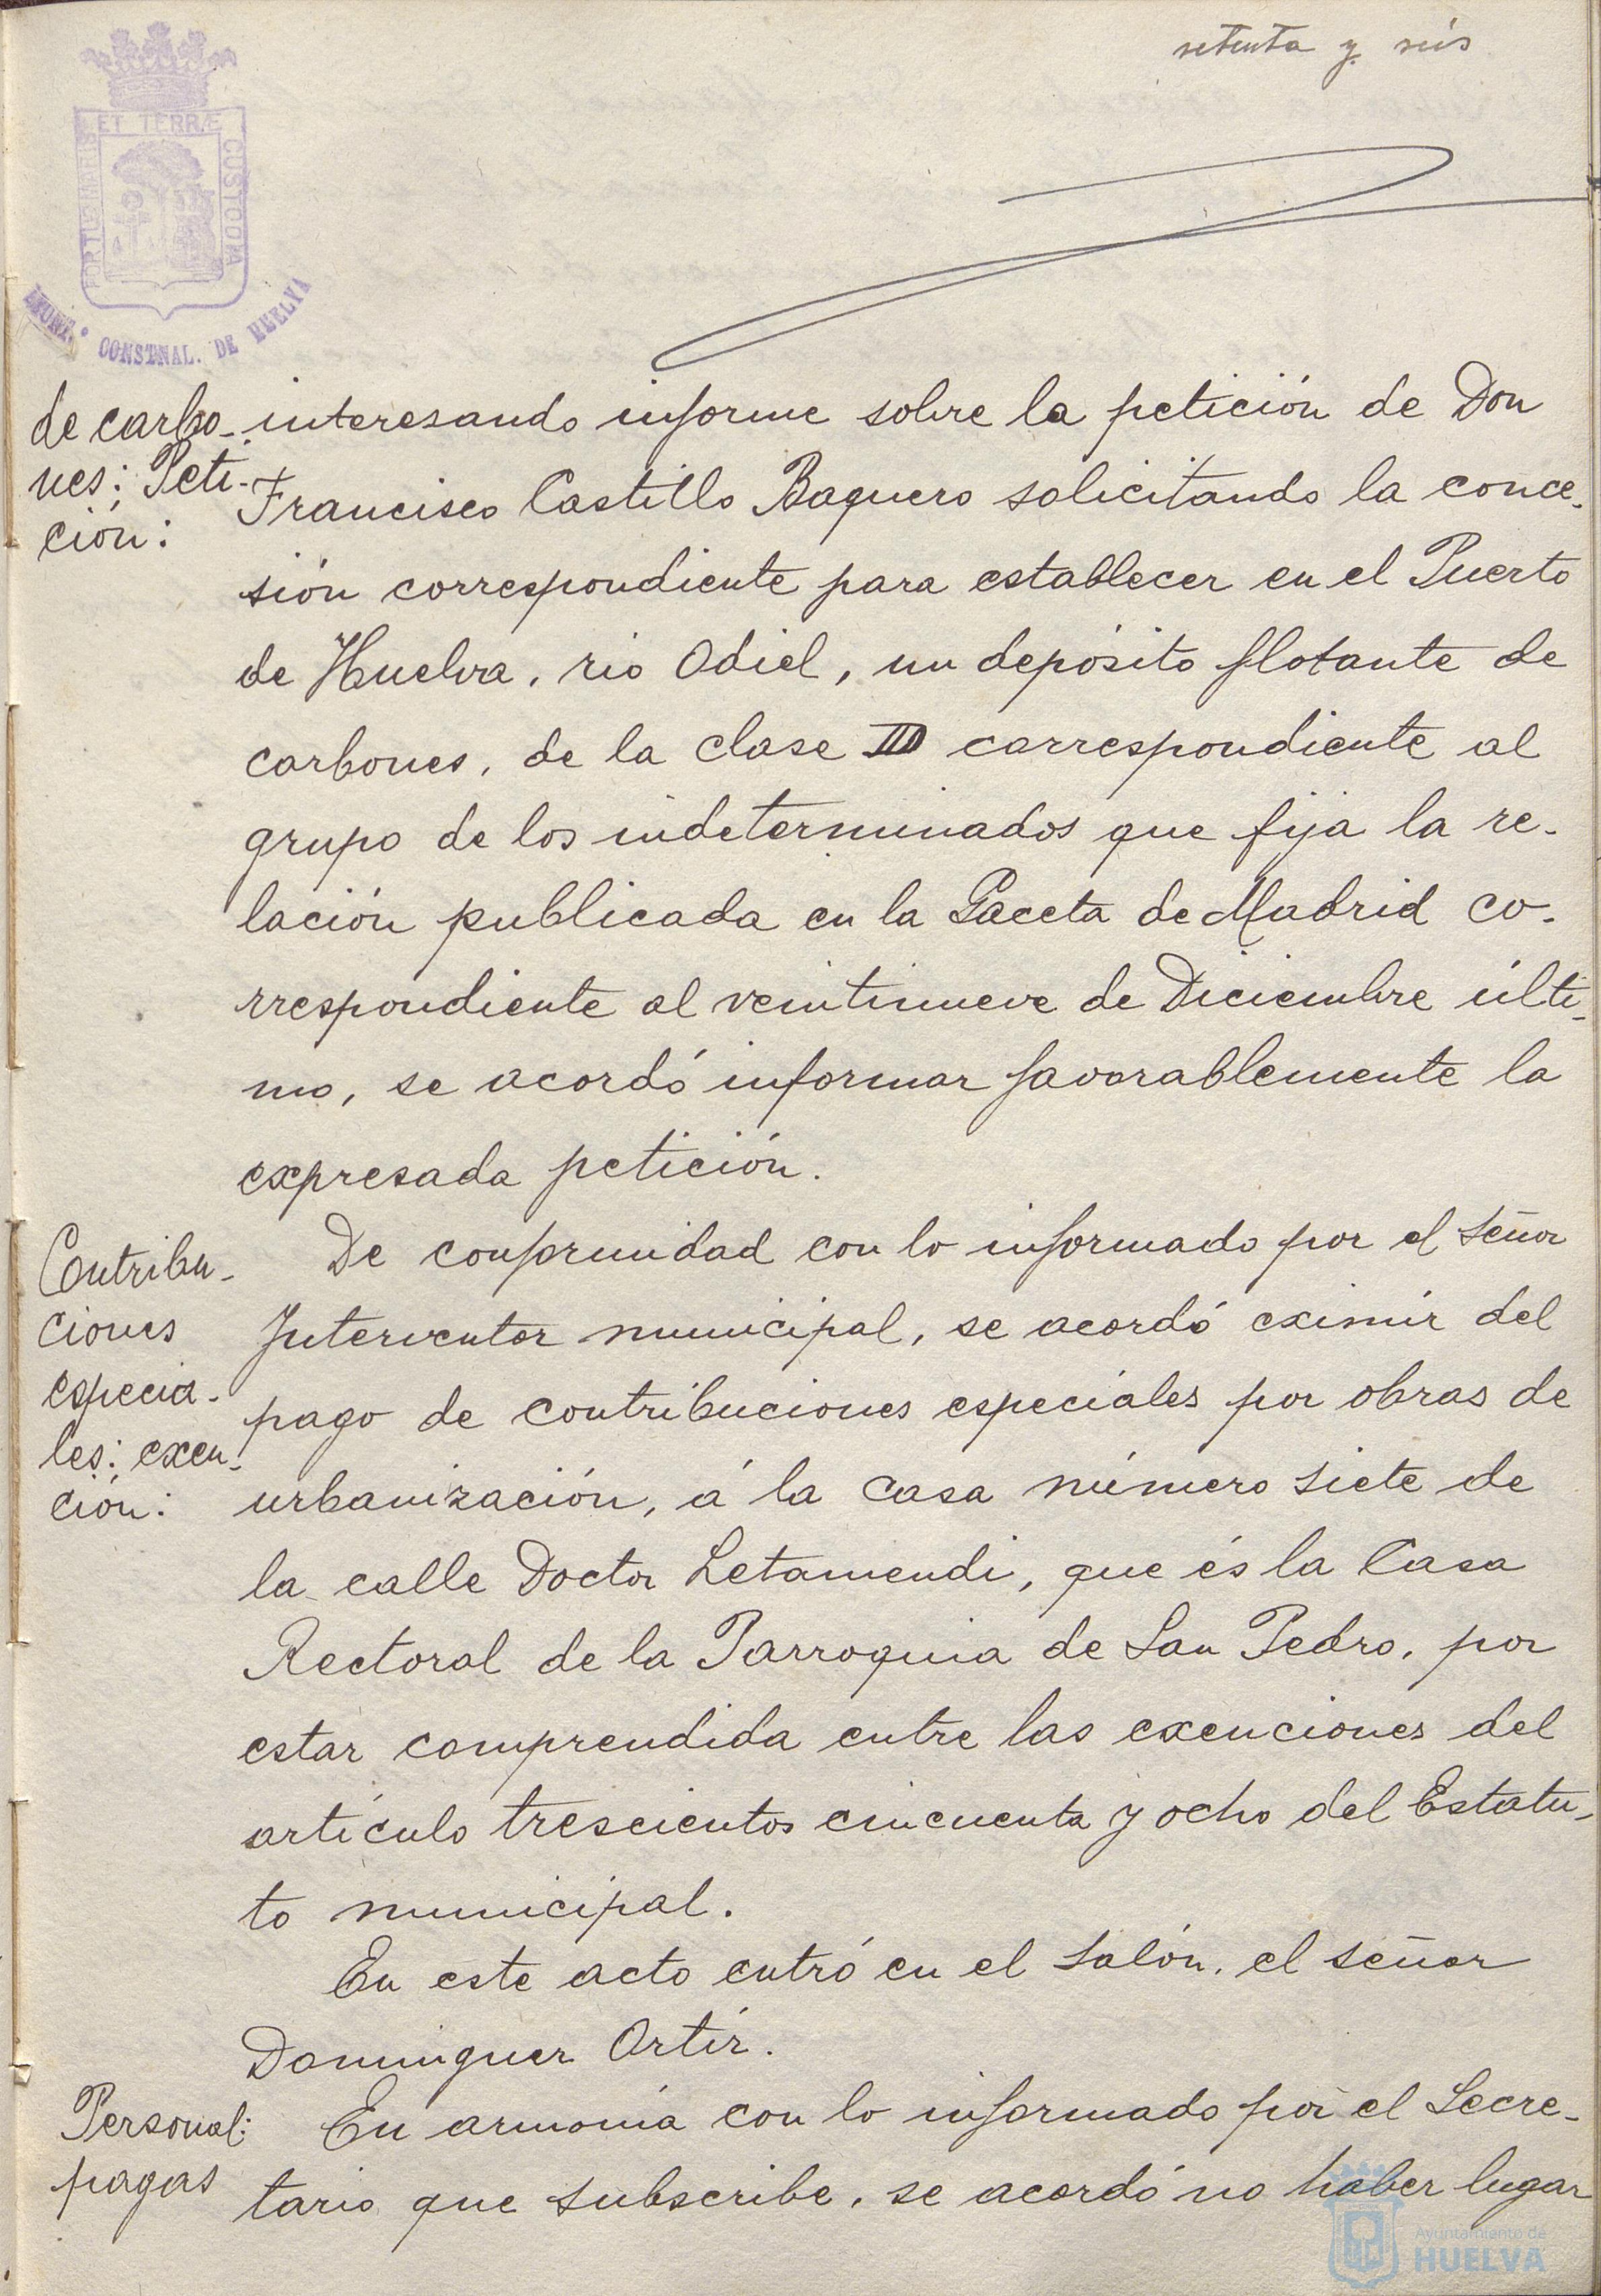 setenta y seis
ET TERRÆ
PORTUS MARIS
CUSTODIA
CONSTNAL. DE HUELVA
de carbo-
nes: Peti-
ción:
interesando informe sobre la petición de Don
Francisco Castillo Baquero solicitando la conce-
sión correspondiente para establecer en el Puerto
de Huelva, rio Odiel, un depósito flotante de
carbones, de la clase III correspondiente al
grupo de los indeterminados que fija la re-
lación publicada en la Gaceta de Madrid co-
rrespondiente al veintinueve de Diciembre últi-
mo, se acordó informar favorablemente la
expresada petición.
Contribu-
ciones
especia-
les: exen-
ción:
De conformidad con lo informado por el Señor
Interventor municipal, se acordó eximir del
pago de contribuciones especiales por obras de
urbanización, á la casa número siete de
la calle Doctor Letamendi, que és la Casa
Rectoral de la Parroquia de San Pedro, por
estar comprendida entre las exenciones del
artículo trescientos cincuenta y ocho del Estatu-
to municipal.
En este acto entró en el Salón, el señor
Dominguez Ortíz.
Personal:
pagas
En armonía con lo informado por el Secre-
tario que subscribe, se acordó no haber lugar
Ayuntamiento de
HUELVA